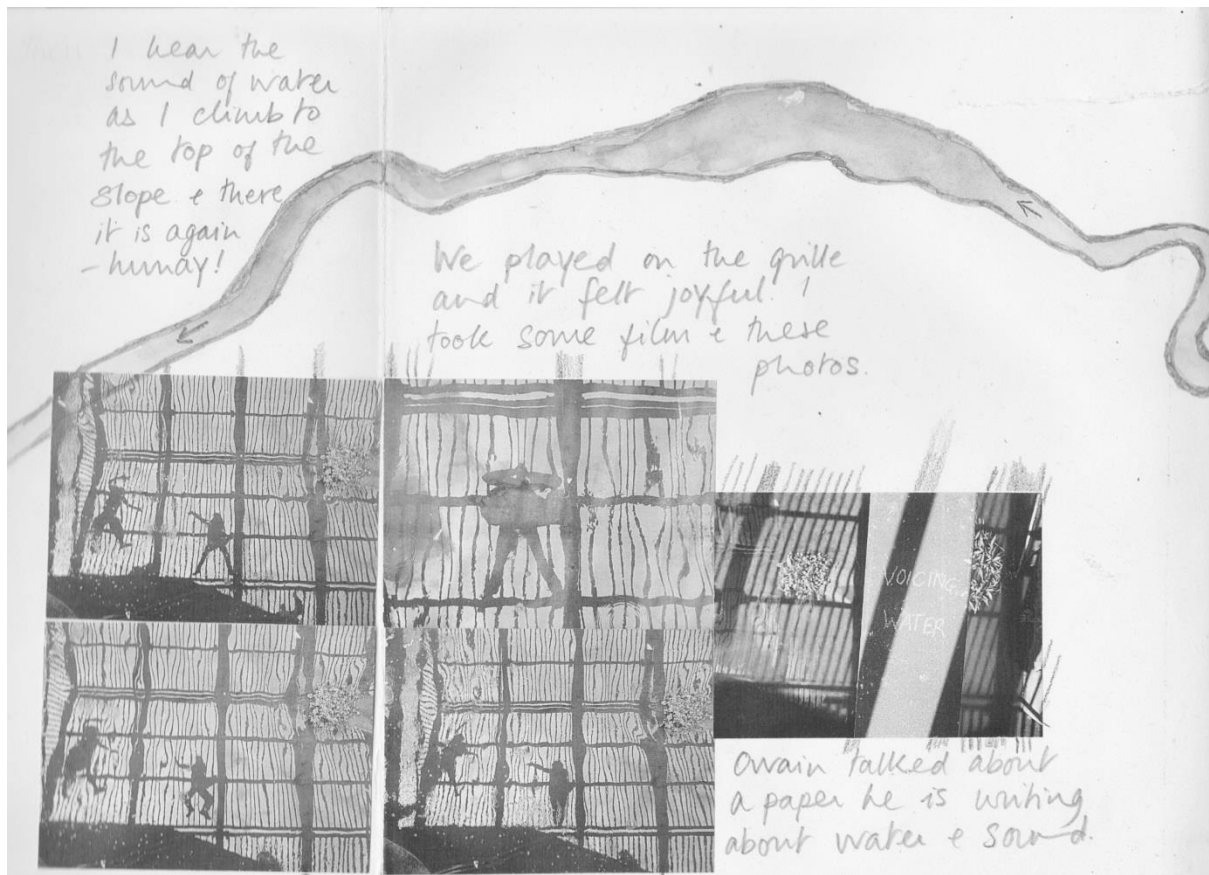 I hear the
sound of water
as I climb to
the top of the
slope & there
it is again
- hurray!
We played on the grille
and it felt joyful. I
took some film & these
photos.
VOICING
WATER
Owain talked about
a paper he is writing
about water & sound.